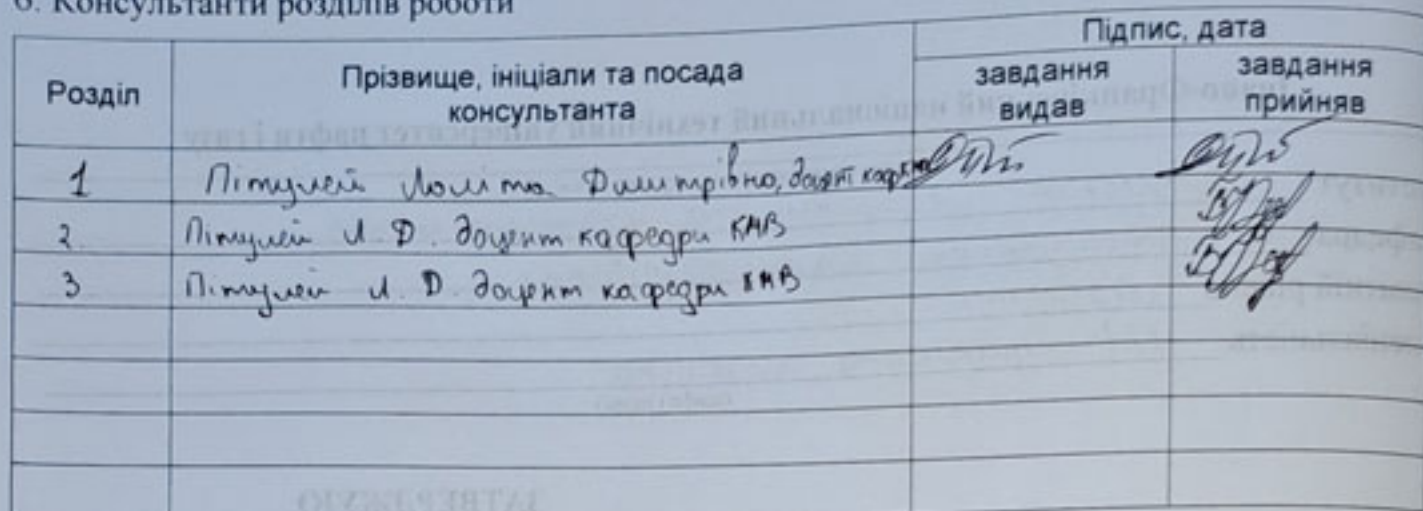 6. Консультанти розділів роботи
Підпис, дата
Розділ
Прізвище, ініціали та посада
консультанта
завдання
видав
завдання
прийняв
1 Пітулей Лоліта Дмитрівна, доцент каф КМВ
2. Пітулей Л. Д. доцент кафедри КМВ
3 Пітулей Л. Д. доцент кафедри КМВ